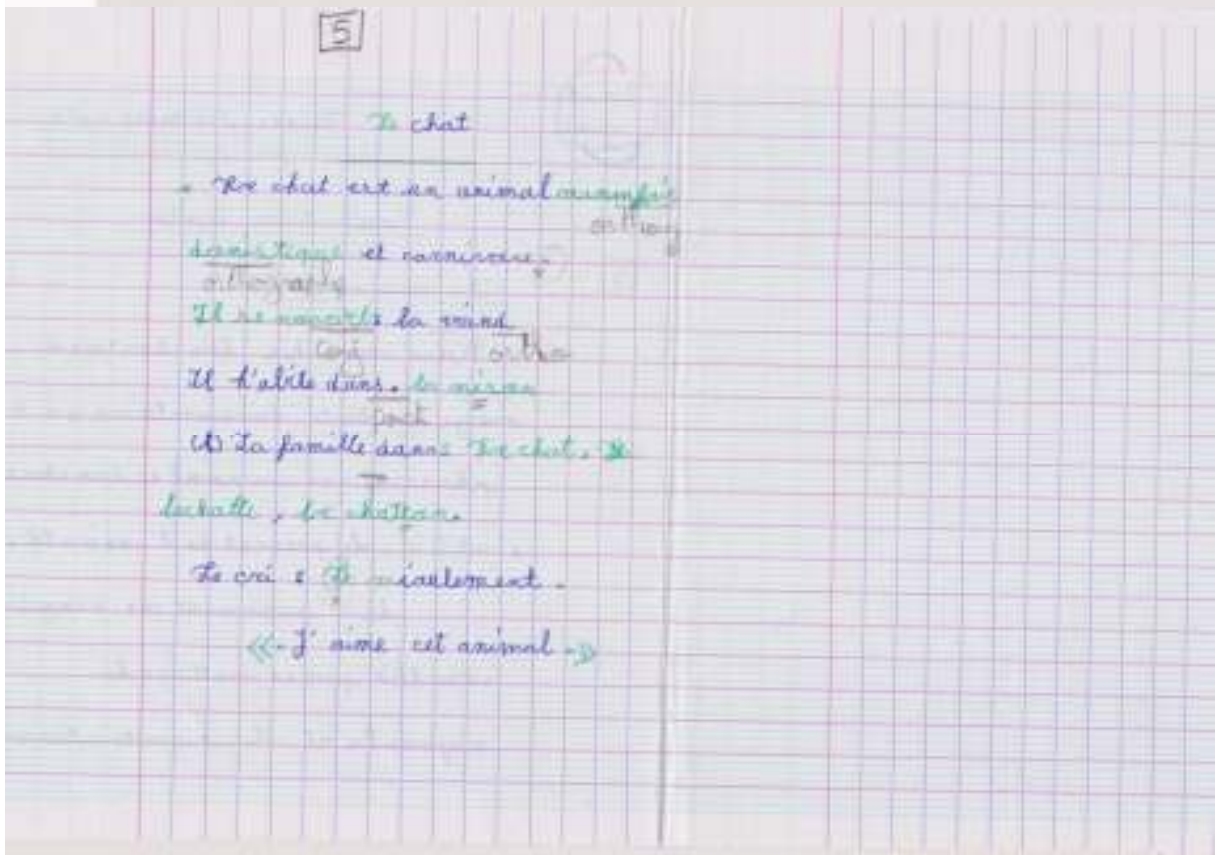 5
Le chat
Le chat est un animal
orthog
et carnivore.
orthographe
Il se la viand
conj ortho
Il h'abite dans. la
ponct
La famille dans Le chat. Le
lachatte, le chatton.
Le cri : Le miaulement.
<<- J'aime cet animal ->>